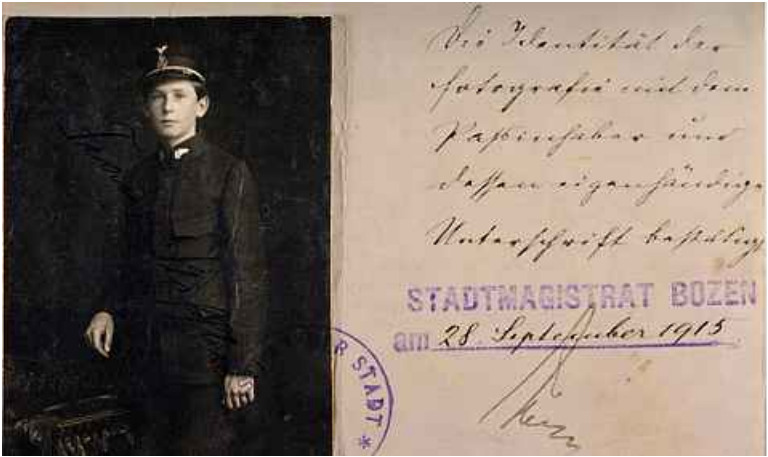 Die Identität der
Fotografie mit dem
Paßinhaber und
dessen eigenhändige
Unterschrift bestätigt
STADTMAGISTRAT BOZEN
am 28. September 1915
R STADT *